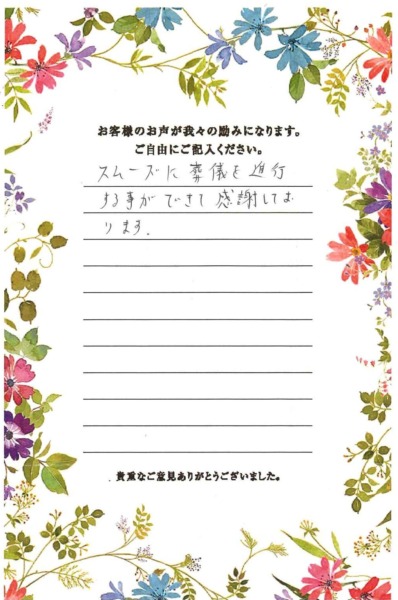 お客様のお声が我々の励みになります。
ご自由にご記入ください。
スムーズに葬儀を進行
する事ができて感謝してお
ります。
貴重なご意見ありがとうございました。